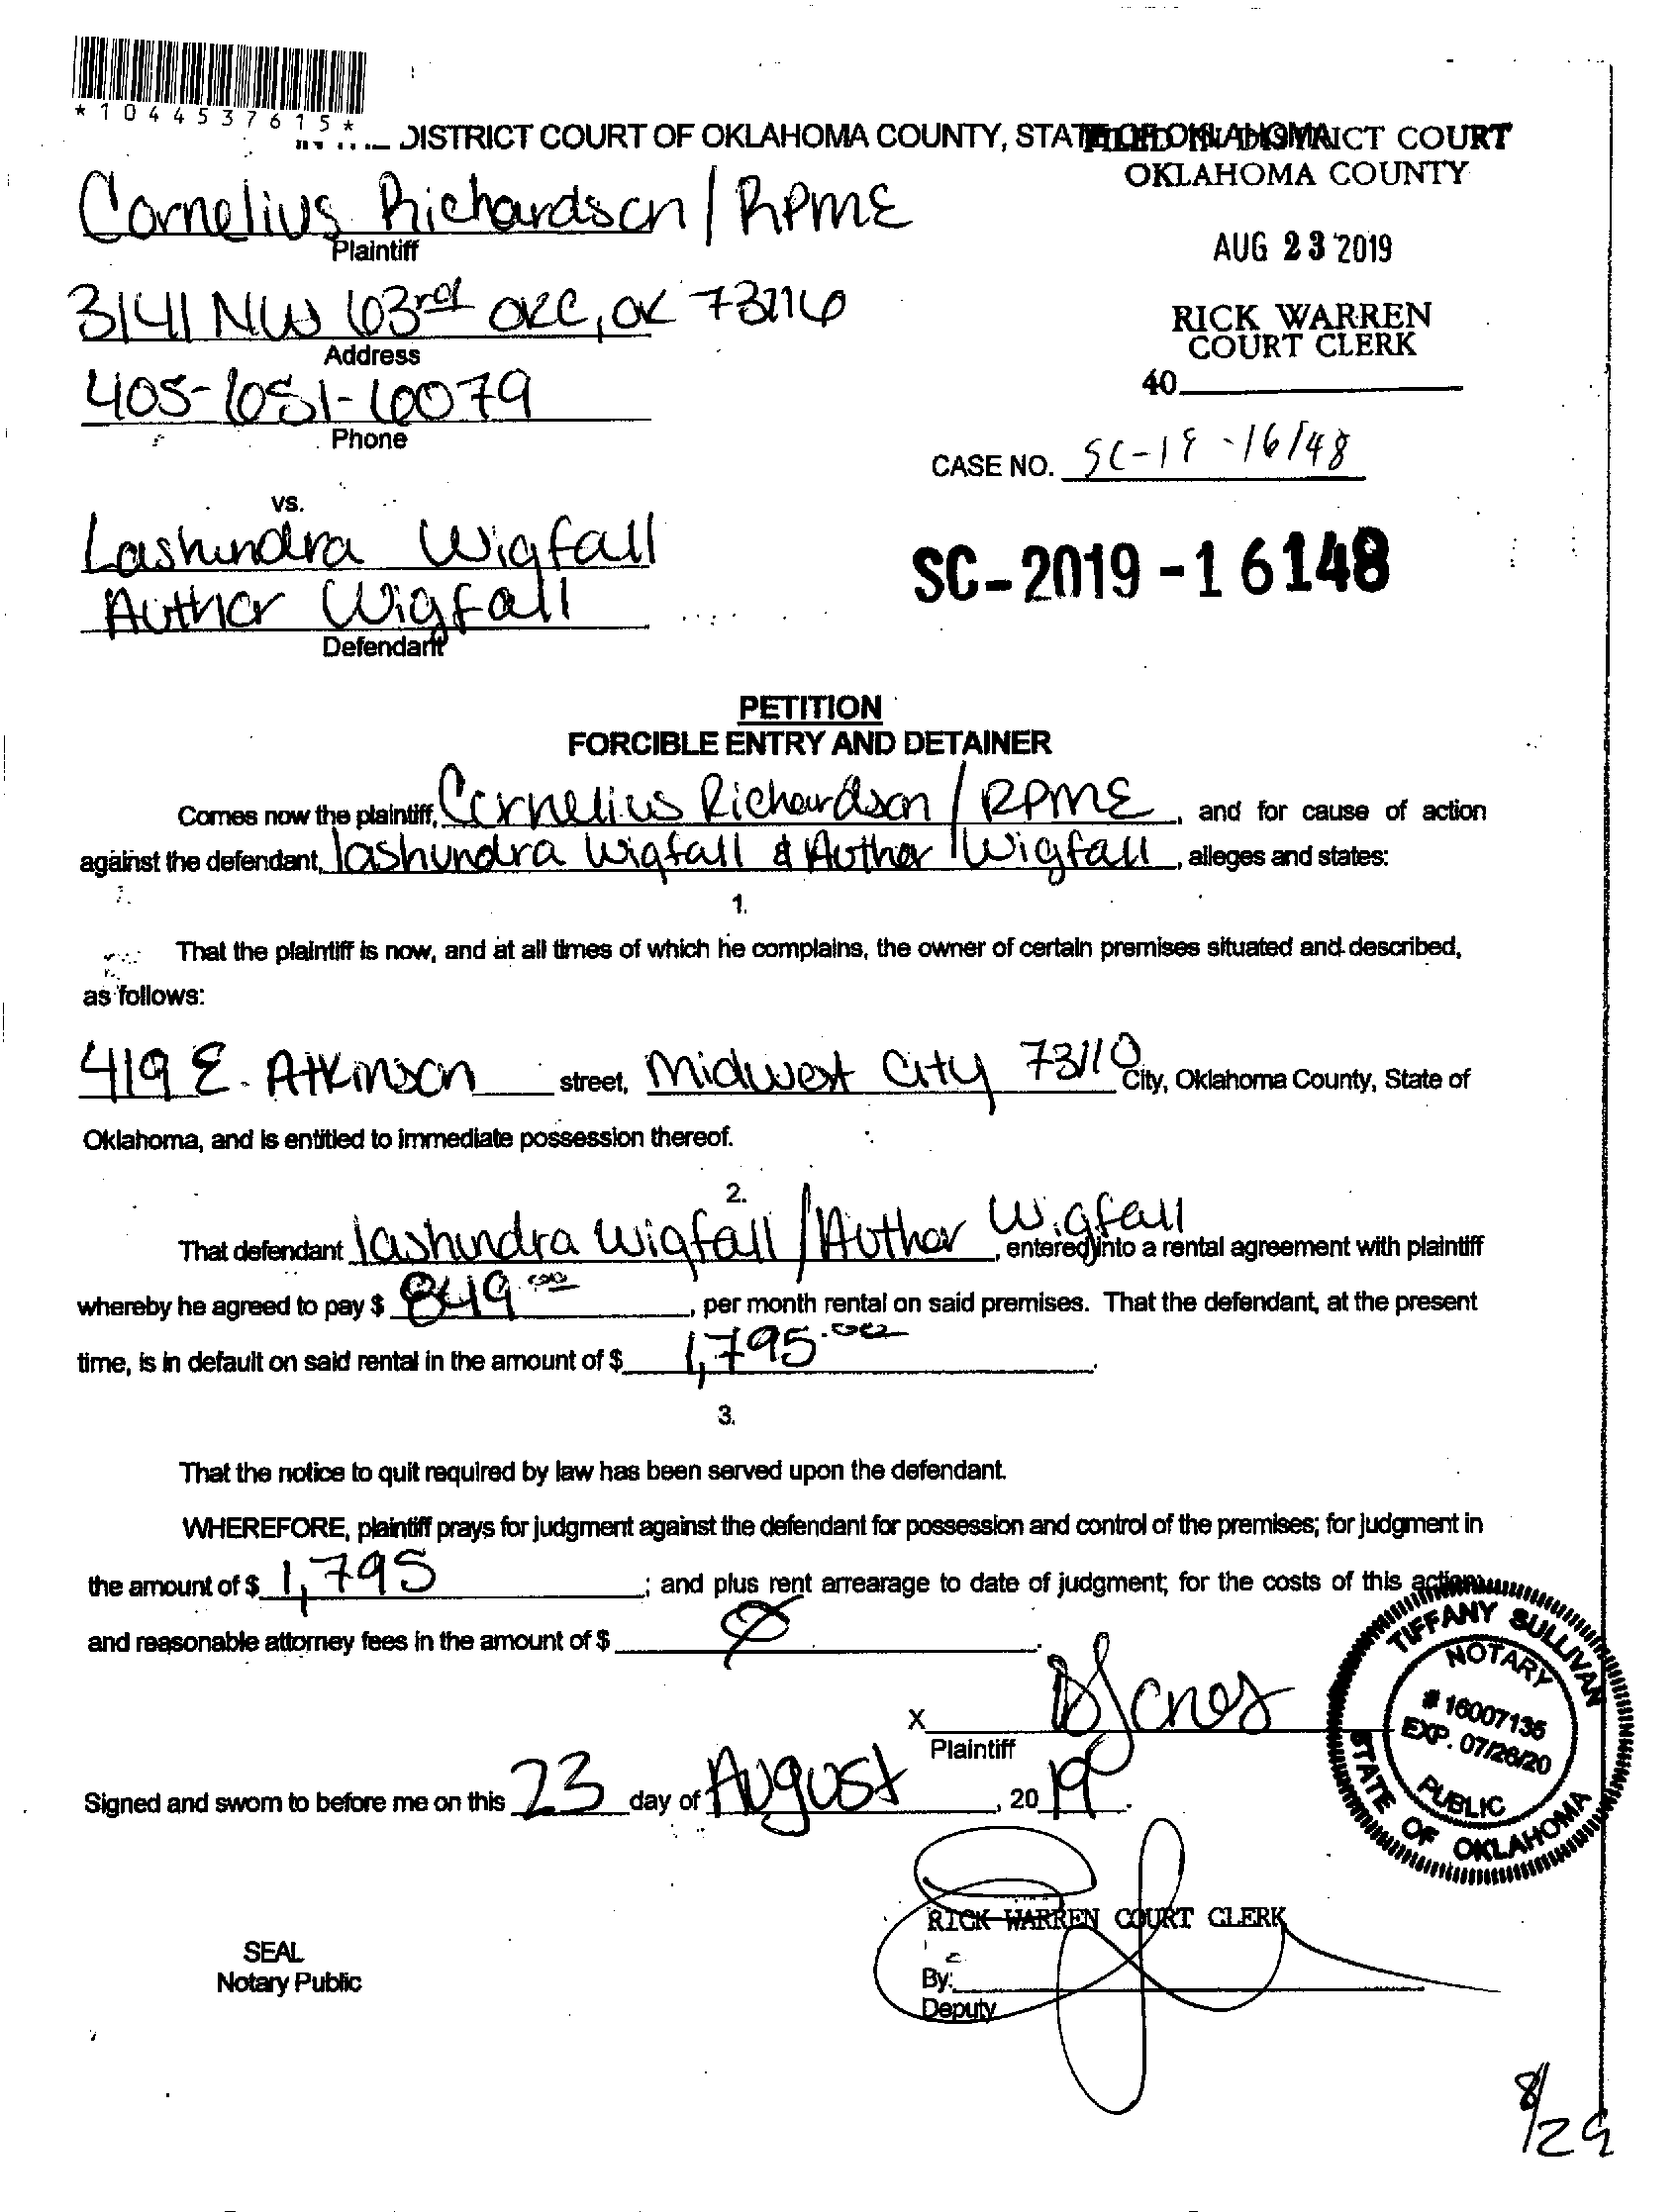 *1044537615*
DISTRICT COURT OF OKLAHOMA COUNTY, STATE OF OKLAHOMA
FILED IN DISTRICT COURT
OKLAHOMA COUNTY
Cornelius Richardson / RPME
Plaintiff
AUG 23 2019
3141 NW 63rd OKC, OK 73116
Address
RICK WARREN
COURT CLERK
405-651-6079
Phone
40
CASE NO. SC-19-16148
vs.
Lashundra Wigfall
Author Wigfall
Defendant
SC-2019-16148
PETITION
FORCIBLE ENTRY AND DETAINER
Comes now the plaintiff, Cornelius Richardson / RPME, and for cause of action
against the defendant, lashundra Wigfall & Author Wigfall, alleges and states:
1.
That the plaintiff is now, and at all times of which he complains, the owner of certain premises situated and described,
as follows:
419 E. Atkinson street, Midwest City 73110 City, Oklahoma County, State of
Oklahoma, and is entitled to immediate possession thereof.
2.
That defendant lashundra Wigfall / Author Wigfall, entered into a rental agreement with plaintiff
whereby he agreed to pay $ 849.00, per month rental on said premises. That the defendant, at the present
time, is in default on said rental in the amount of $ 1,795.00.
3.
That the notice to quit required by law has been served upon the defendant.
WHEREFORE, plaintiff prays for judgment against the defendant for possession and control of the premises; for judgment in
the amount of $ 1,795; and plus rent arrearage to date of judgment; for the costs of this action;
and reasonable attorney fees in the amount of $
X
Plaintiff
TIFFANY SULLIVAN
NOTARY
# 16007135
EXP. 07/26/20
PUBLIC
STATE OF OKLAHOMA
Signed and sworn to before me on this 23 day of August, 2019.
RICK WARREN COURT CLERK
SEAL
Notary Public
By:
Deputy
8/29